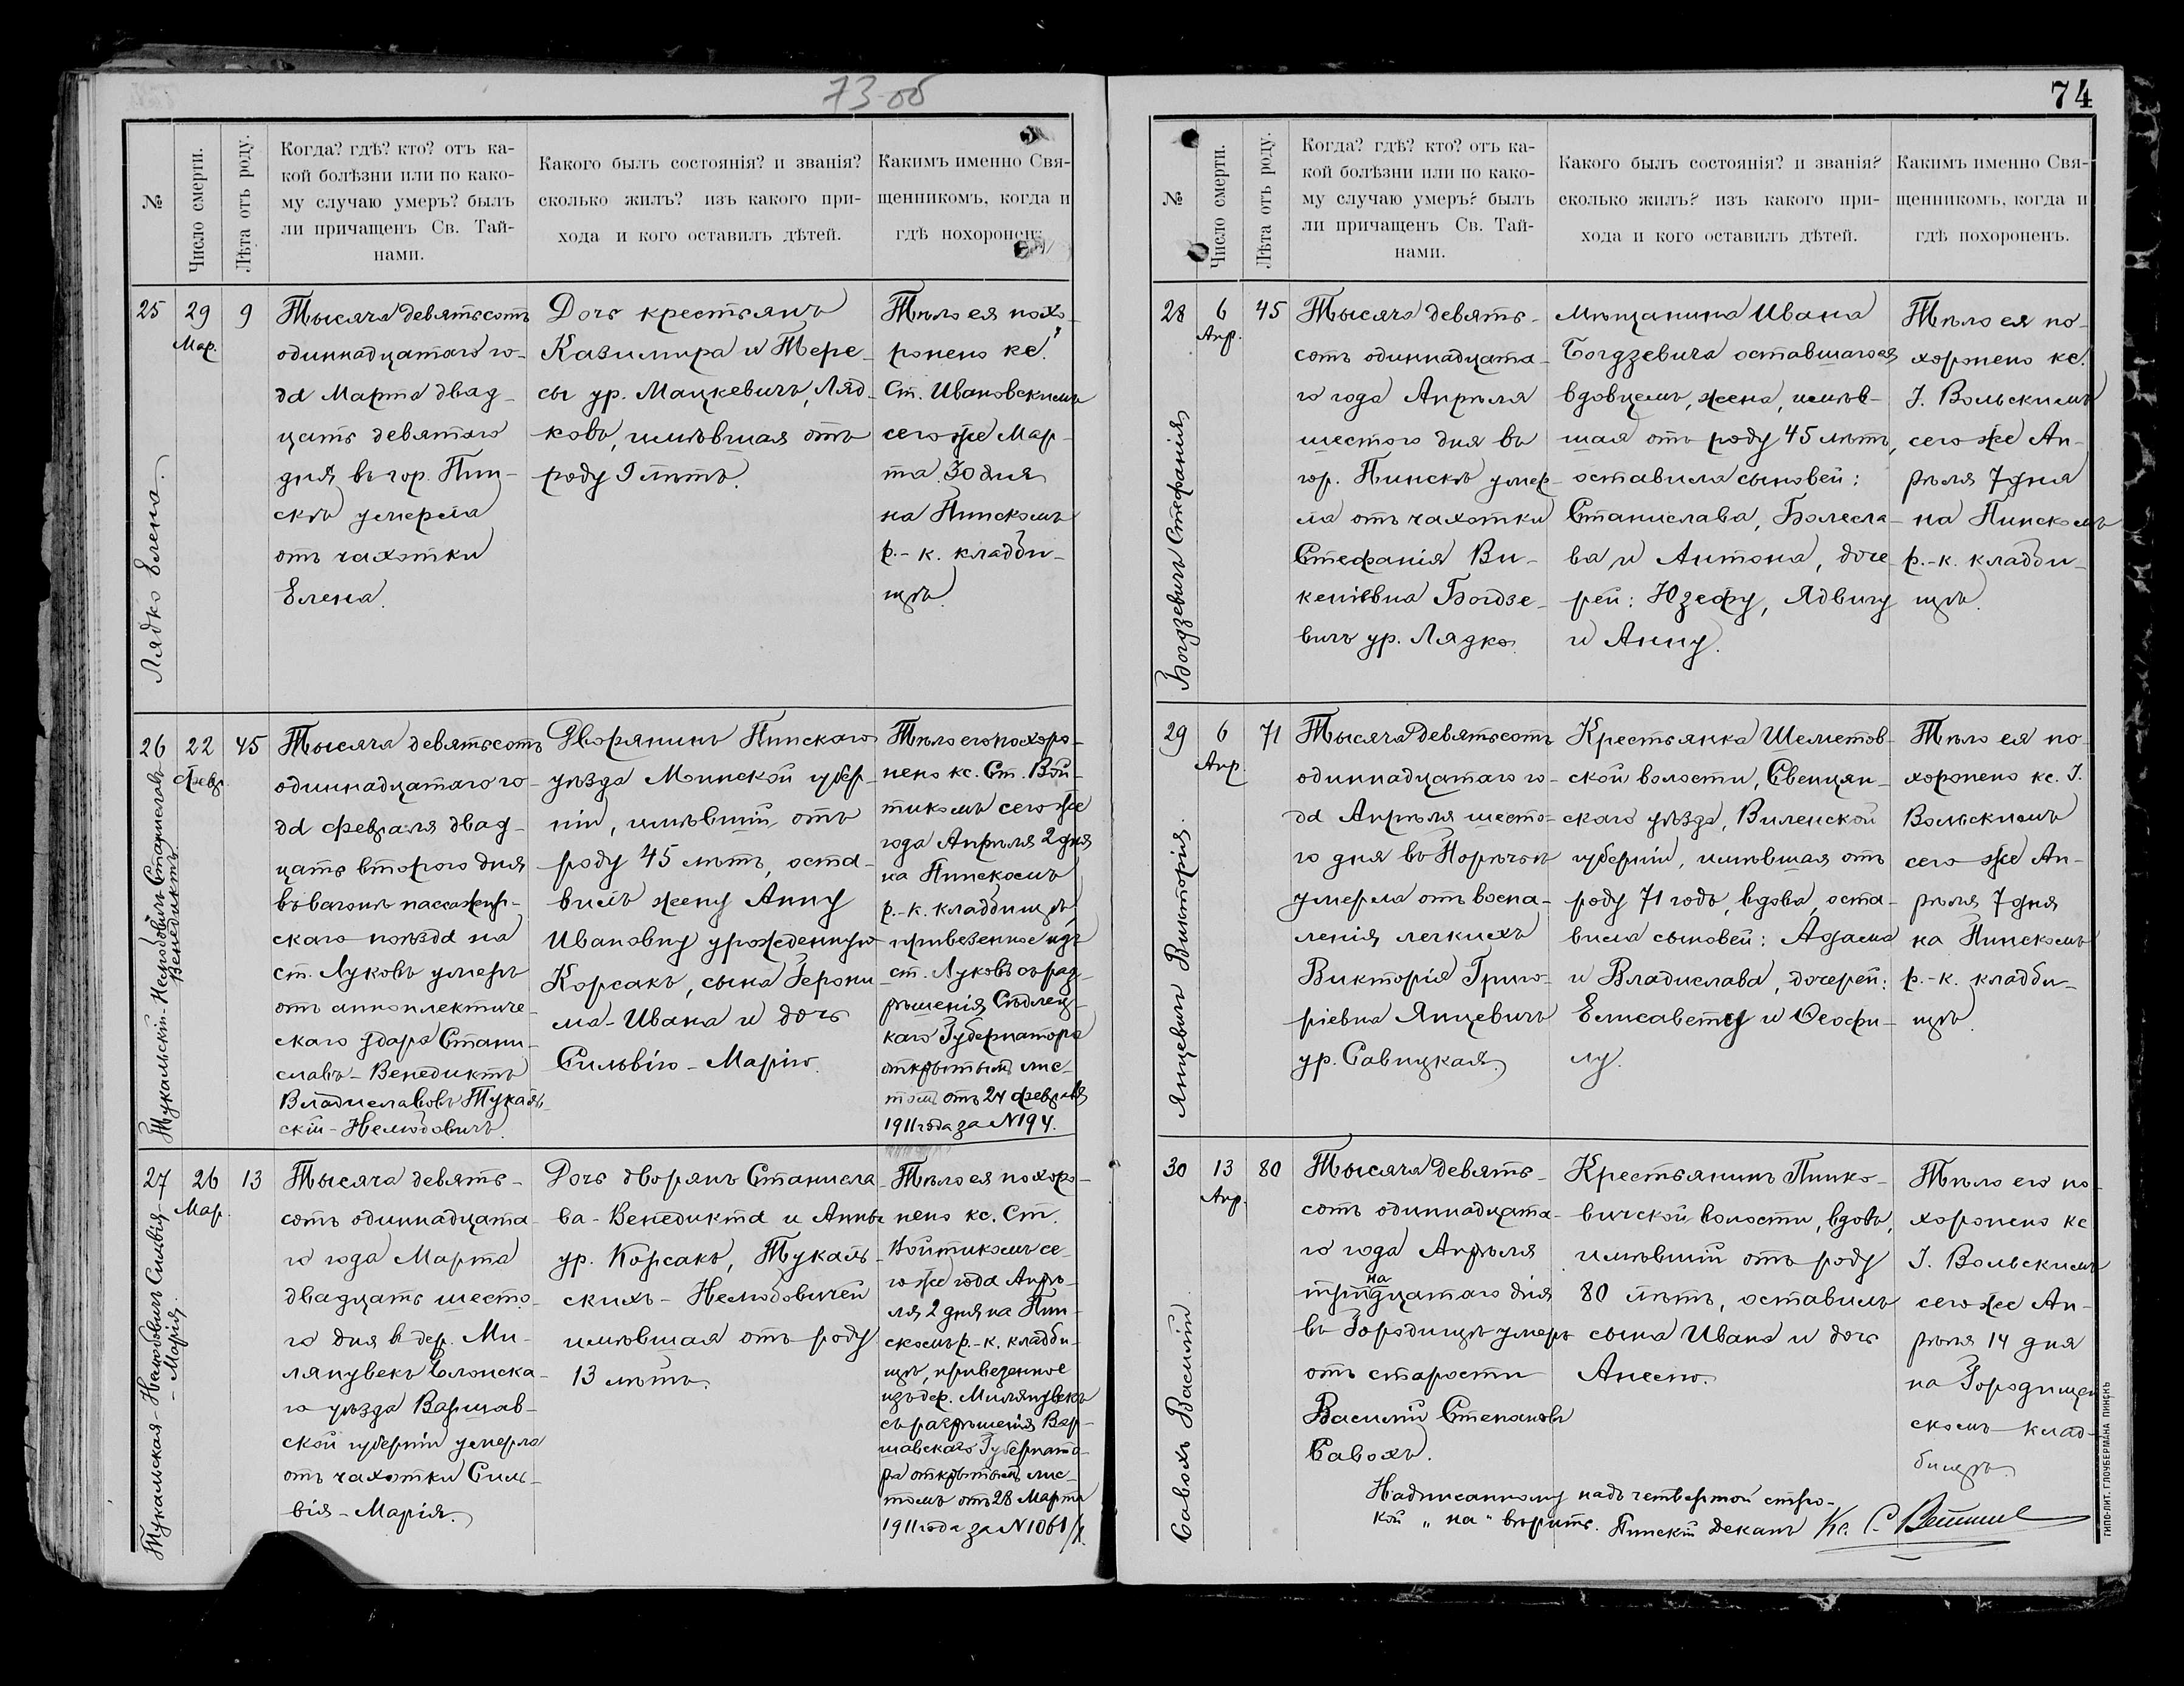 73-об
№
Число смерти.
Лѣта отъ роду.
Когда? гдѣ? кто? отъ ка-
кой болѣзни или по како-
му случаю умеръ? былъ
ли причащенъ Св. Тай-
нами.
Какого былъ состоянія? и званія?
сколько жилъ? изъ какого при-
хода и кого оставилъ дѣтей.
Какимъ именно Свя-
щенникомъ, когда и
гдѣ похороненъ.
25
Лядко Елена.
29
Мар.
9
Тысяча девятьсотъ
одиннадцатаго го-
да Марта двад-
цать девятаго
дня въ гор. Пин-
скѣ умерла
отъ чахотки
Елена.
Дочь крестьянъ
Казимира и Тере-
сы ур. Мацкевичъ, Ляд-
ковъ, имѣвшая отъ
роду 9 лѣтъ.
Тѣло ея похо-
ронено кс.
Ст. Ивановскимъ
сего же Мар-
та 30 дня
на Пинскомъ
р.-к. кладби-
щѣ.
26
Тукальскій-Нелюбовичъ Станиславъ-
Венедиктъ
22
Февр.
45
Тысяча девятьсотъ
одиннадцатаго го-
да февраля двад-
цать второго дня
въ вагонѣ пассажир-
скаго поѣзда на
ст. Луковъ умеръ
отъ апоплектиче-
скаго удара Стани-
славъ-Венедиктъ
Владиславовъ Тукаль-
скій-Нелюбовичъ.
Дворянинъ Пинскаго
уѣзда Минской губер-
ніи, имѣвшій отъ
роду 45 лѣтъ, оста-
вилъ жену Анну
Ивановну урожденную
Корсакъ, сына Герони-
ма-Ивана и дочь
Сильвію-Марію.
Тѣло его похоро-
нено кс. Ст. Вой-
тикомъ сего же
года Апрѣля 2 дня
на Пинскомъ
р.-к. кладбищѣ,
привезенное изъ
ст. Луковъ съ раз-
рѣшенія Сѣдлец-
каго Губернатора
открытымъ лис-
томъ отъ 24 февраля
1911 года за N 194.
27
Тукальская-Нелюбовичъ Сильвія-
-Марія.
26
Мар.
13
Тысяча девять-
сотъ одиннадцата-
го года Марта
двадцать шесто-
го дня въ дер. Ми-
лянувекъ Блонска-
го уѣзда Варшав-
ской губерніи умерла
отъ чахотки Силь-
вія-Марія.
Дочь дворянъ Станисла-
ва-Венедикта и Анны
ур. Корсакъ, Тукаль-
скихъ-Нелюбовичей
имѣвшая отъ роду
13 лѣтъ.
Тѣло ея похоро-
нено кс. Ст.
Войтикомъ се-
го же года Апрѣ-
ля 2 дня на Пин-
скомъ р.-к. кладби-
щѣ, привезенное
изъ дер. Милянувекъ
съ разрѣшенія Вар-
шавскаго Губернато-
ра открытымъ лис-
томъ отъ 28 Марта
1911 года за N 1061
74
№
Число смерти.
Лѣта отъ роду.
Когда? гдѣ? кто? отъ ка-
кой болѣзни или по како-
му случаю умеръ? былъ
ли причащенъ Св. Тай-
нами.
Какого былъ состоянія? и званія?
сколько жилъ? изъ какого при-
хода и кого оставилъ дѣтей.
Какимъ именно Свя-
щенникомъ, когда и
гдѣ похороненъ.
28
Богдзевичъ Стефанія
6
Апр.
45
Тысяча девять-
сотъ одиннадцата-
го года Апрѣля
шестого дня въ
гор. Пинскѣ умер-
ла отъ чахотки
Стефанія Ви-
кентьевна Богдзе-
вичъ ур. Лядко.
Мѣщанина Ивана
Богдзевича оставшагося
вдовцемъ, жена, имѣв-
шая отъ роду 45 лѣтъ,
оставила сыновей:
Станислава, Болесла-
ва и Антона, доче-
рей: Юзефу, Ядвигу
и Анну.
Тѣло ея по-
хоронено кс.
І. Вольскимъ
сего же Ап-
рѣля 7 дня
на Пинскомъ
р.-к. кладби-
щѣ.
29
Янцевичъ Викторія.
6
Апр.
71
Тысяча девятьсотъ
одиннадцатаго го-
да Апрѣля шесто-
го дня въ Порѣчьѣ
умерла отъ воспа-
ленія легкихъ
Викторія Григо-
ріевна Янцевичъ
ур. Савицкая.
Крестьянка Шеметов-
ской волости, Свенцян-
скаго уѣзда, Виленской
губерніи, имѣвшая отъ
роду 71 годъ, вдова, оста-
вила сыновей: Адама
и Владислава, дочерей:
Елисавету и Ѳеофи-
лу.
Тѣло ея по-
хоронено кс. І.
Вольскимъ
сего же Ап-
рѣля 7 дня
на Пинскомъ
р.-к. кладби-
щѣ.
30
Савохъ Василій
13
Апр.
80
Тысяча девять-
сотъ одиннадцата-
го года Апрѣля
на
тридцатаго дня
въ Городищѣ умеръ
отъ старости
Василій Степановъ
Савохъ.
Крестьянинъ Пинко-
вичской волости, вдовъ,
имѣвшій отъ роду
80 лѣтъ, оставилъ
сына Ивана и дочь
Анелю.
Тѣло его по-
хоронено кс
І. Вольскимъ
сего же Ап-
рѣля 14 дня
на Городищен-
скомъ клад-
бищѣ.
Надписанному надъ четвертой стро-
кой „на" вѣрить. Пинскій Деканъ Кс. С.
ТИПО-ЛИТ. ГЛОУБЕРМАНА ПИНСКЪ